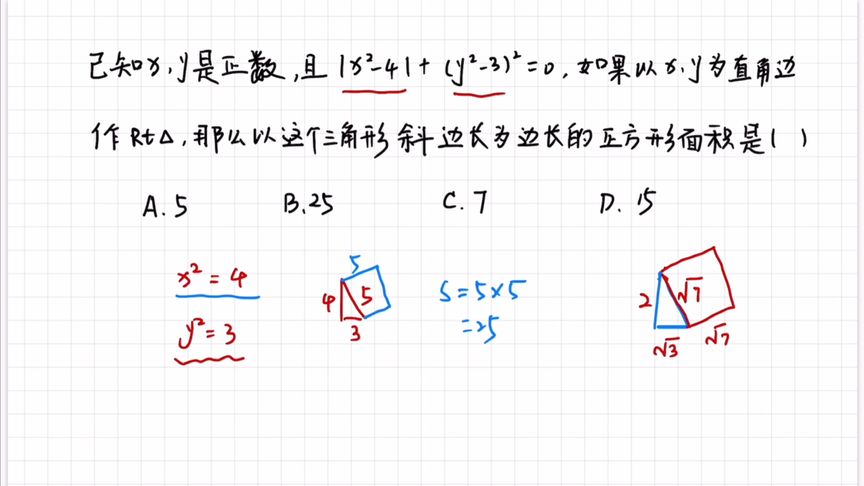 已知x,y是正数,且|x²-4|+(y²-3)²=0,如果以x,y为直角边
作Rt△,那么以这个三角形斜边长为边长的正方形面积是( )
A.5 B.25 C.7 D.15
x²=4
y²=3
5
4 5
3
S=5×5
=25
2 √7
√3 √7